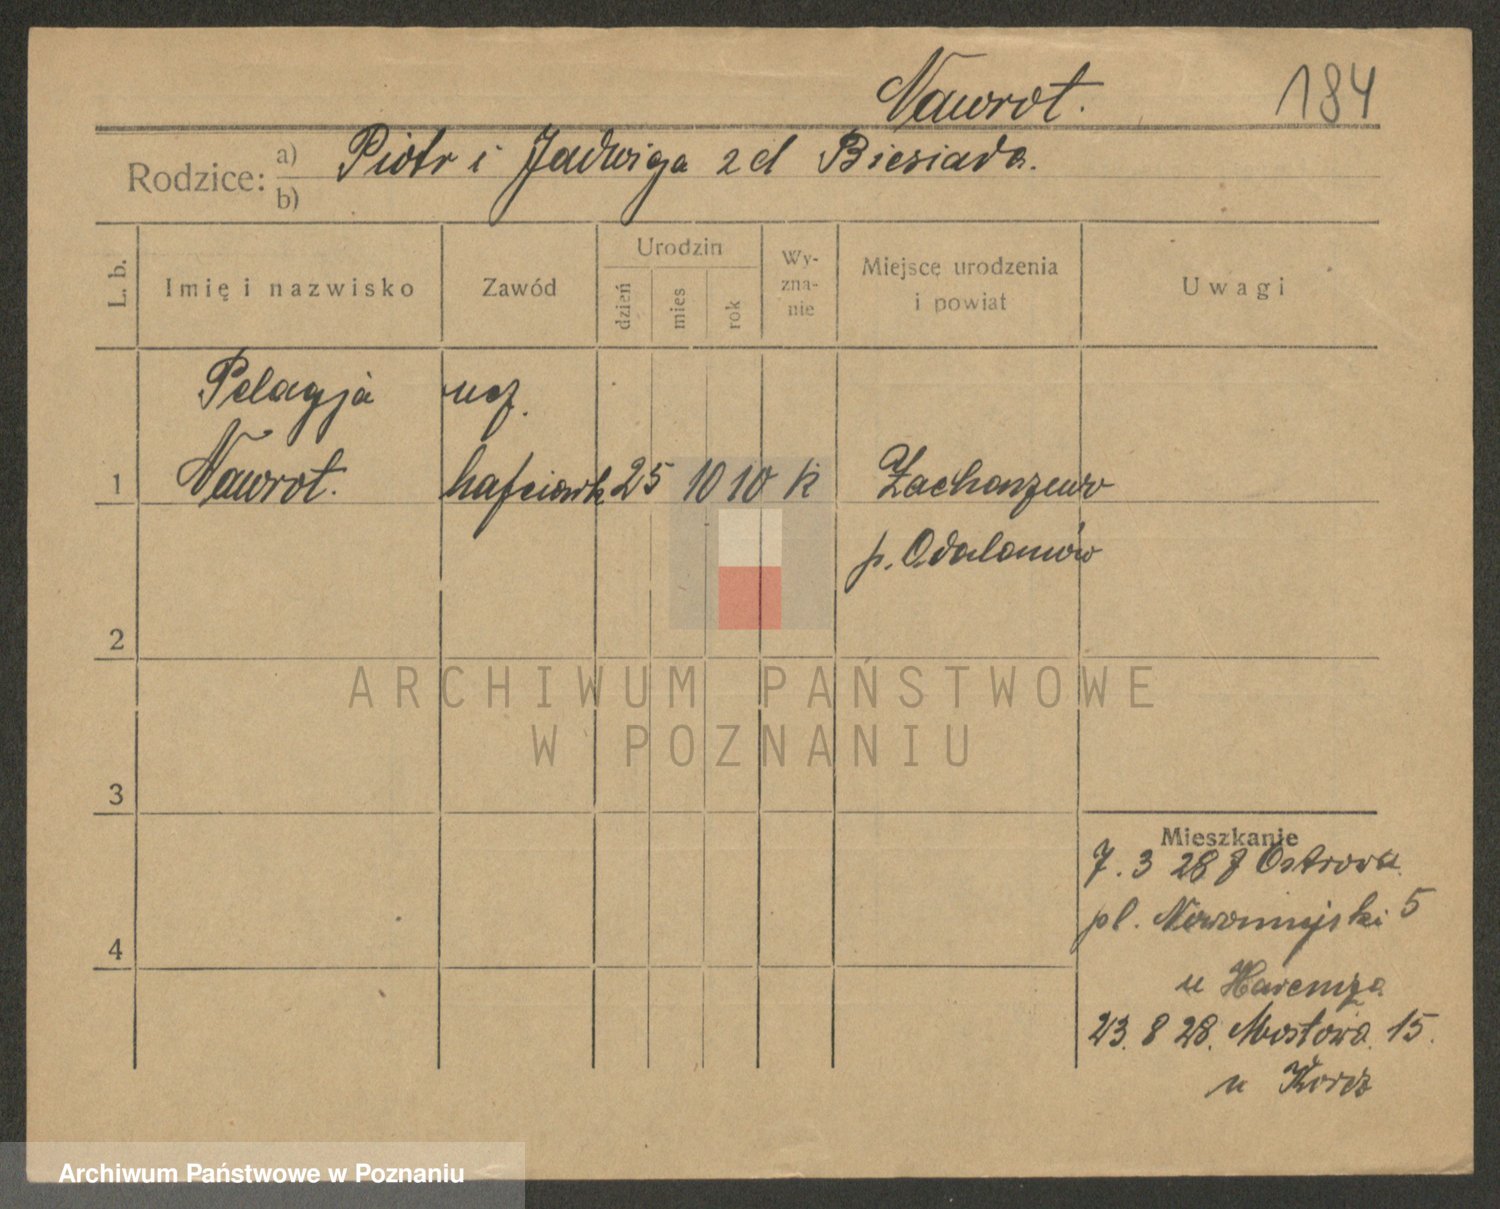 Nawrot. 184
Rodzice: a) Piotr i Jadwiga z d Biesiada.
b)
L. b. Imię i nazwisko Zawód Urodzin dzień mies rok Wy-zna-nie Miejsce urodzenia i powiat Uwagi
Pelagja ucz.
1 Nawrot. hafciark 25 10 10 k Zacharzewo
p. Odolanów
2
ARCHIWUM PAŃSTWOWE
W POZNANIU
3
Mieszkanie
7. 3 28 z Ostrowa
pl. Nowomiejski 5
4
u Haremza
23. 8 28. Mostowa 15.
u
Archiwum Państwowe w Poznaniu